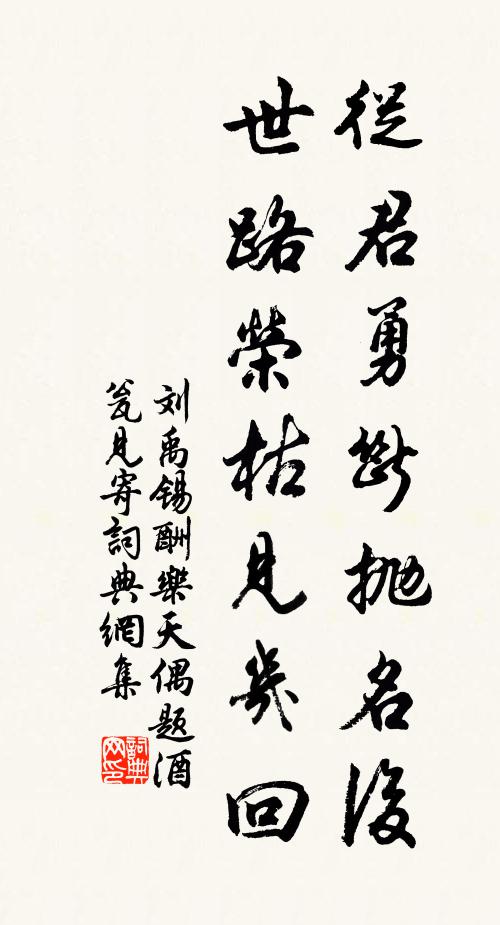 從君勇斷拋名後
世路榮枯見幾回
刘禹锡酬樂天偶题酒
瓮見寄詞典網集
詞典
网印